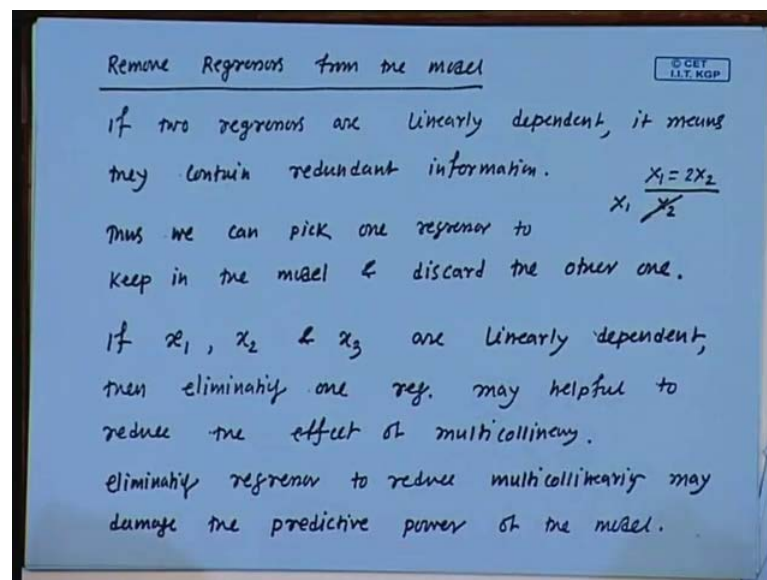 Remove Regressors from the model
© CET
I.I.T. KGP
If two regressors are linearly dependent, it means
they contain redundant information.
X₁ = 2X₂
X₁ X₂
Thus we can pick one regressor to
keep in the model & discard the other one.
If x₁, x₂ & x₃ are linearly dependent,
then eliminating one reg. may helpful to
reduce the effect of multicollineary.
eliminating regressor to reduce multicollinearity may
damage the predictive power of the model.